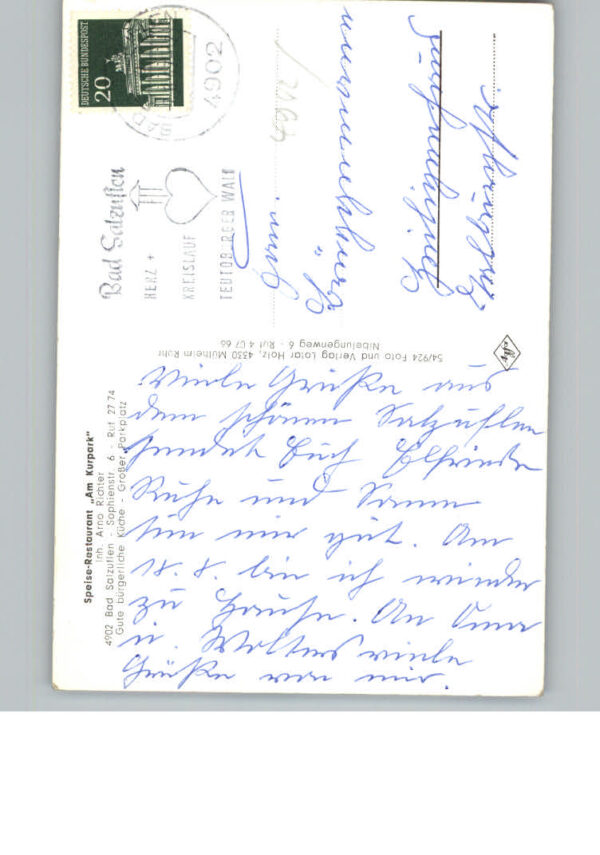 DEUTSCHE BUNDESPOST
20
4902
BAD
Bad Salzuflen
HERZ +
KREISLAUF
TEUTOBURGER WALD
4912
54/924 Foto und Verlag Lotar Holz, 4330 Mülheim Ruhr
Nibelungenweg 6 - Ruf 4 07 66
Speise-Restaurant „Am Kurpark"
Inh. Arno Richter
4902 Bad Salzuflen - Sophienstr. 6 - Ruf 27 74
Gute bürgerliche Küche - Großer Parkplatz
Viele Grüße aus
dem schönen Salzuflen
sendet Euch Elfriede
Ruhe und Sonne
tun mir gut. Am
18. 8. bin ich wieder
zu Hause. An Oma
u. Wolters viele
Grüße von mir.